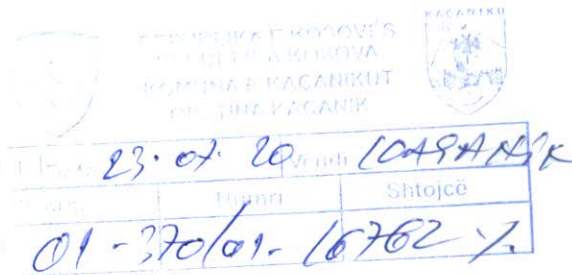 KAÇANIKU
REPUBLIKA E KOSOVËS
REPUBLIKA KOSOVA
KOMUNA E KAÇANIKUT
OPŠTINA KAČANIK
23.07.20 Vendi KAÇANIK
Numri Shtojcë
01-370/01-16762 /.